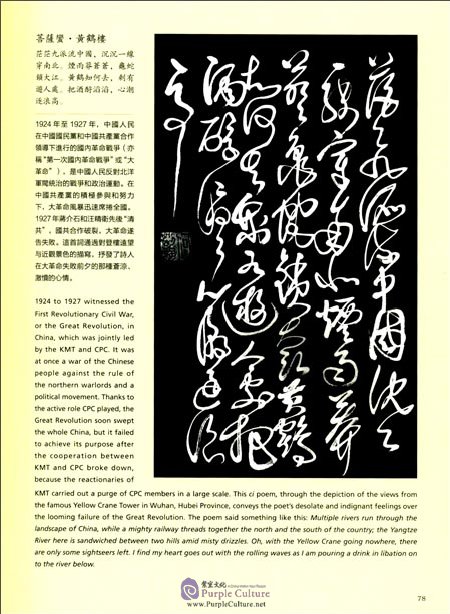 菩薩蠻·黃鶴樓
茫茫九派流中國,沉沉一線
穿南北。煙雨莽蒼蒼,龜蛇
鎖大江。黃鶴知何去,剩有
遊人處。把酒酹滔滔,心潮
逐浪高。
1924年至1927年,中國人民
在中國國民黨和中國共產黨合作
領導下進行的國內革命戰爭(亦
稱“第一次國內革命戰爭”或“大
革命”),是中國人民反對北洋
軍閥統治的戰爭和政治運動。在
中國共產黨的積極參與和努力
下,大革命風暴迅速席捲全國。
1927年蔣介石和汪精衛先後“清
共”,國共合作破裂,大革命遂
告失敗。這首詞通過對登樓遠望
與近觀景色的描寫,抒發了詩人
在大革命失敗前夕的那種蒼涼、
激憤的心情。
1924 to 1927 witnessed the
First Revolutionary Civil War,
or the Great Revolution, in
China, which was jointly led
by the KMT and CPC. It was
at once a war of the Chinese
people against the rule of
the northern warlords and a
political movement. Thanks to
the active role CPC played, the
Great Revolution soon swept
the whole China, but it failed
to achieve its purpose after
the cooperation between
KMT and CPC broke down,
because the reactionaries of
KMT carried out a purge of CPC members in a large scale. This ci poem, through the depiction of the views from
the famous Yellow Crane Tower in Wuhan, Hubei Province, conveys the poet's desolate and indignant feelings over
the looming failure of the Great Revolution. The poem said something like this: Multiple rivers run through the
landscape of China, while a mighty railway threads together the north and the south of the country; the Yangtze
River here is sandwiched between two hills amid misty drizzles. Oh, with the Yellow Crane going nowhere, there
are only some sightseers left. I find my heart goes out with the rolling waves as I am pouring a drink in libation on
to the river below.
茫茫九派流中國沈沈
一線穿南北煙雨莽
蒼蒼龜蛇鎖大江黃鶴
知何去剩有遊人處把
酒酹滔滔心潮逐浪
高
78
紫室文化
Purple Culture
www.PurpleCulture.net